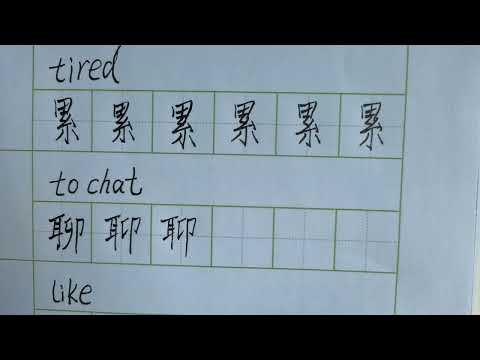 tired
累 累 累 累 累 累
to chat
聊 聊 聊
like